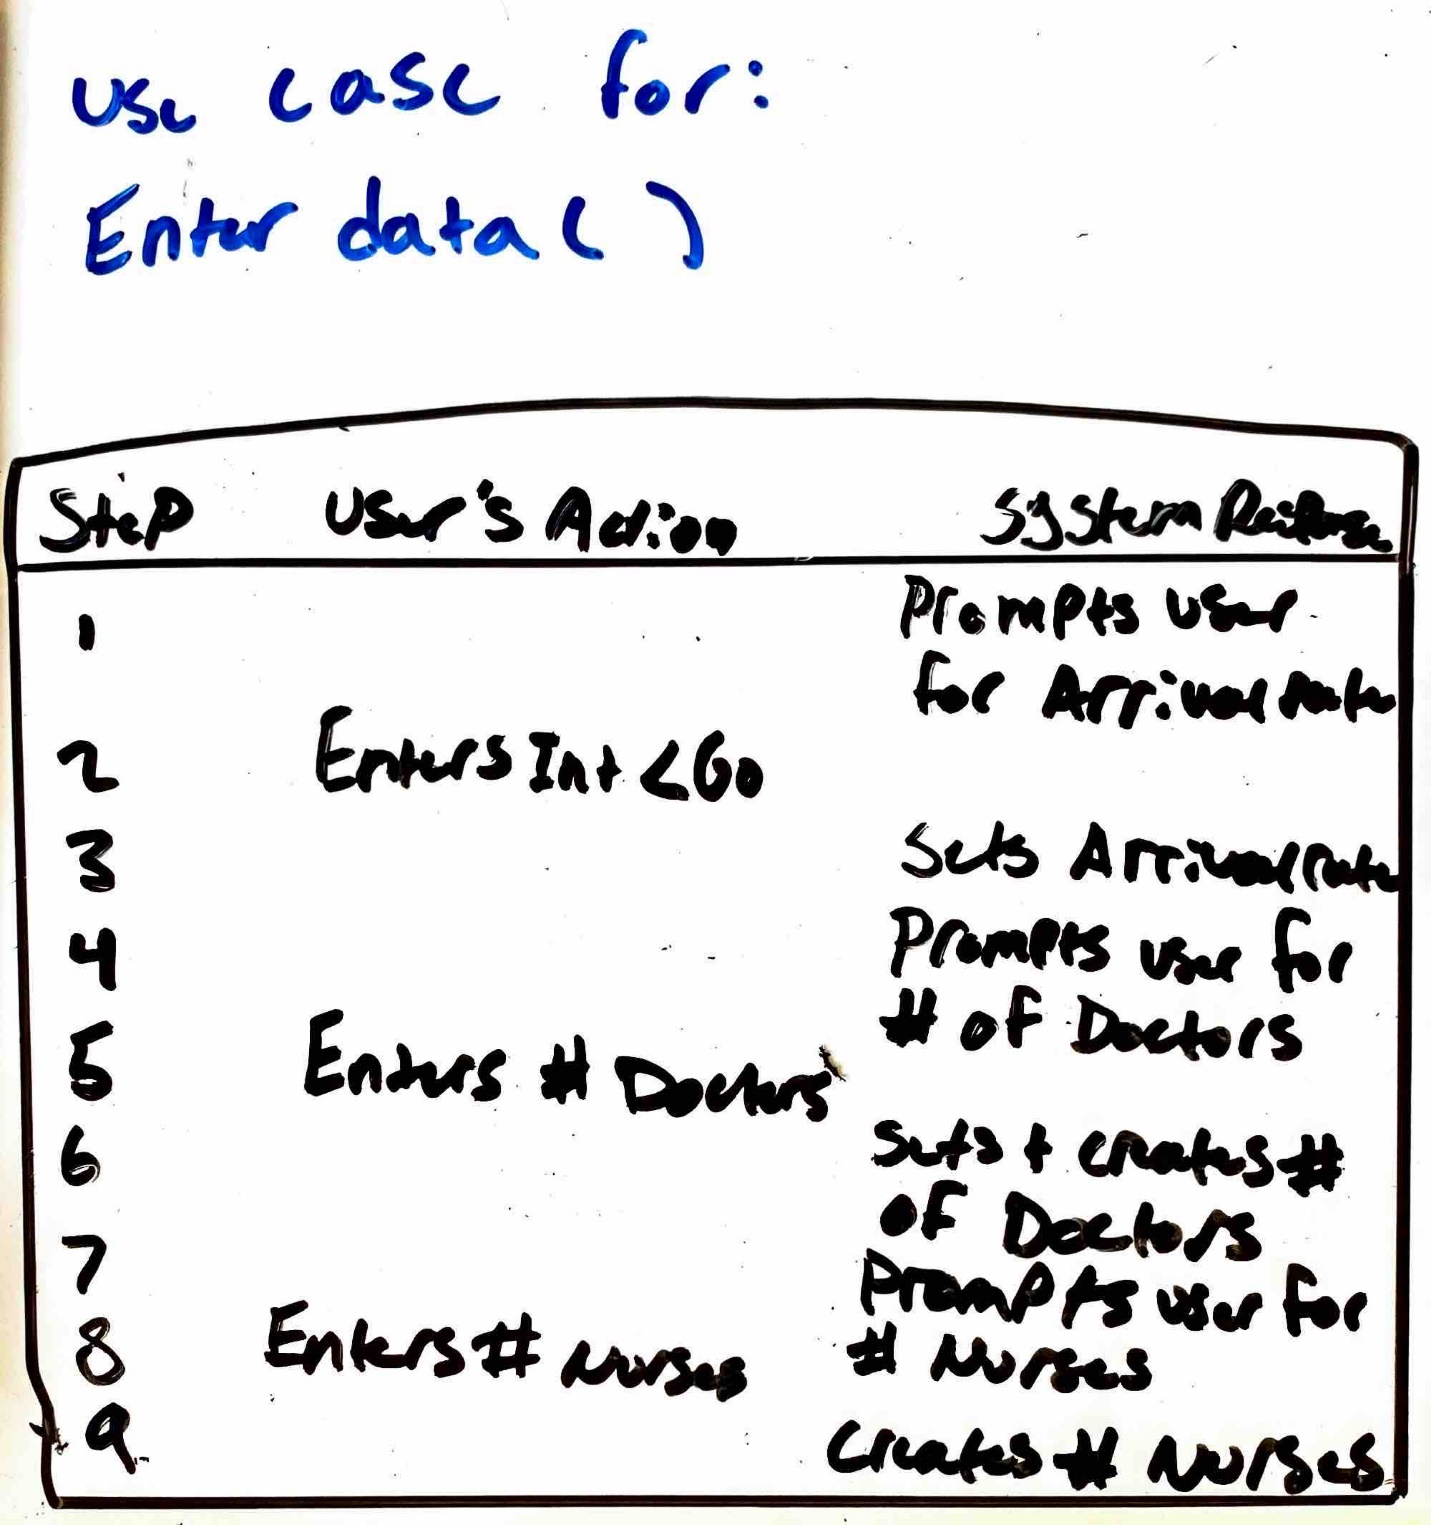 use case for:
Enter data( )
Step User's Action System Response
1 Prompts user
for Arrival rate
2 Enters Int <60
3 Sets Arrival rate
4 Prompts user for
# of Doctors
5 Enters # Doctors
6 Sets + creates #
of Doctors
7 Prompts user for
# Nurses
8 Enters # Nurses
9 Creates # Nurses